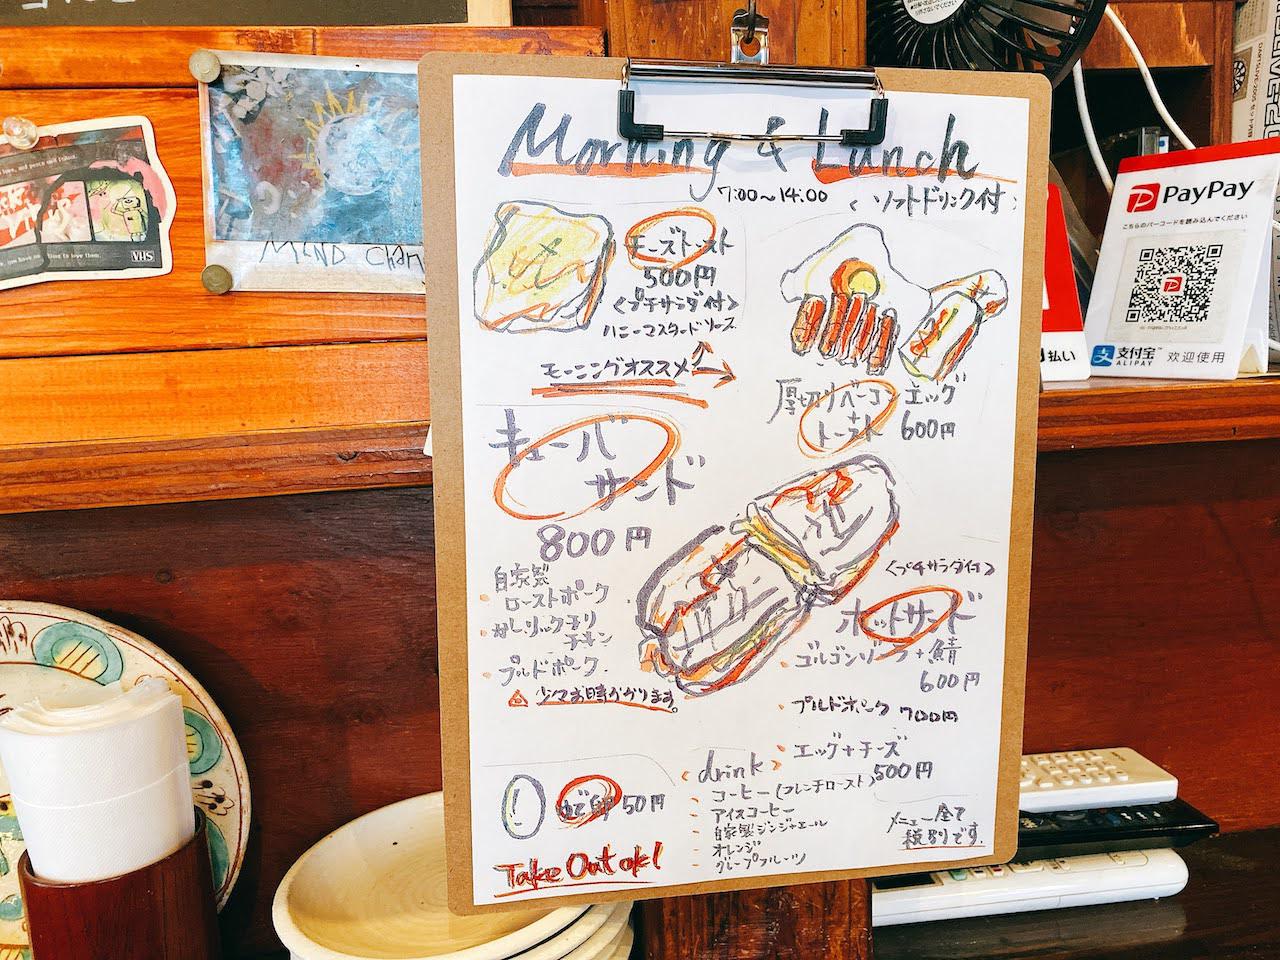 Morning & Lunch
7:00〜14:00 〈ソフトドリンク付〉
モーズトースト
500円
〈プチサラダ付〉
ハニーマスタードソース
モーニングオススメ!
厚切りベーコンエッグ
+
トースト 600円
キューバ
サンド
800円
自家製
ローストポーク
ガーリックチリ
チキン
プルドポーク
少々お時間かかります。
〈プチサラダ付〉
ホットサンド
ゴルゴンゾーラ+鯖
600円
プルドポーク 700円
エッグ+チーズ
500円
ゆで卵 50円
Take Out ok!
〈drink〉
コーヒー(フレンチロースト)
アイスコーヒー
自家製ジンジャエール
オレンジ
グレープフルーツ
メニュー全て
税別です。
MIND Chan
VHS
PayPay
こちらのバーコードを読み込んでください
支付宝 ALIPAY 欢迎使用
払い